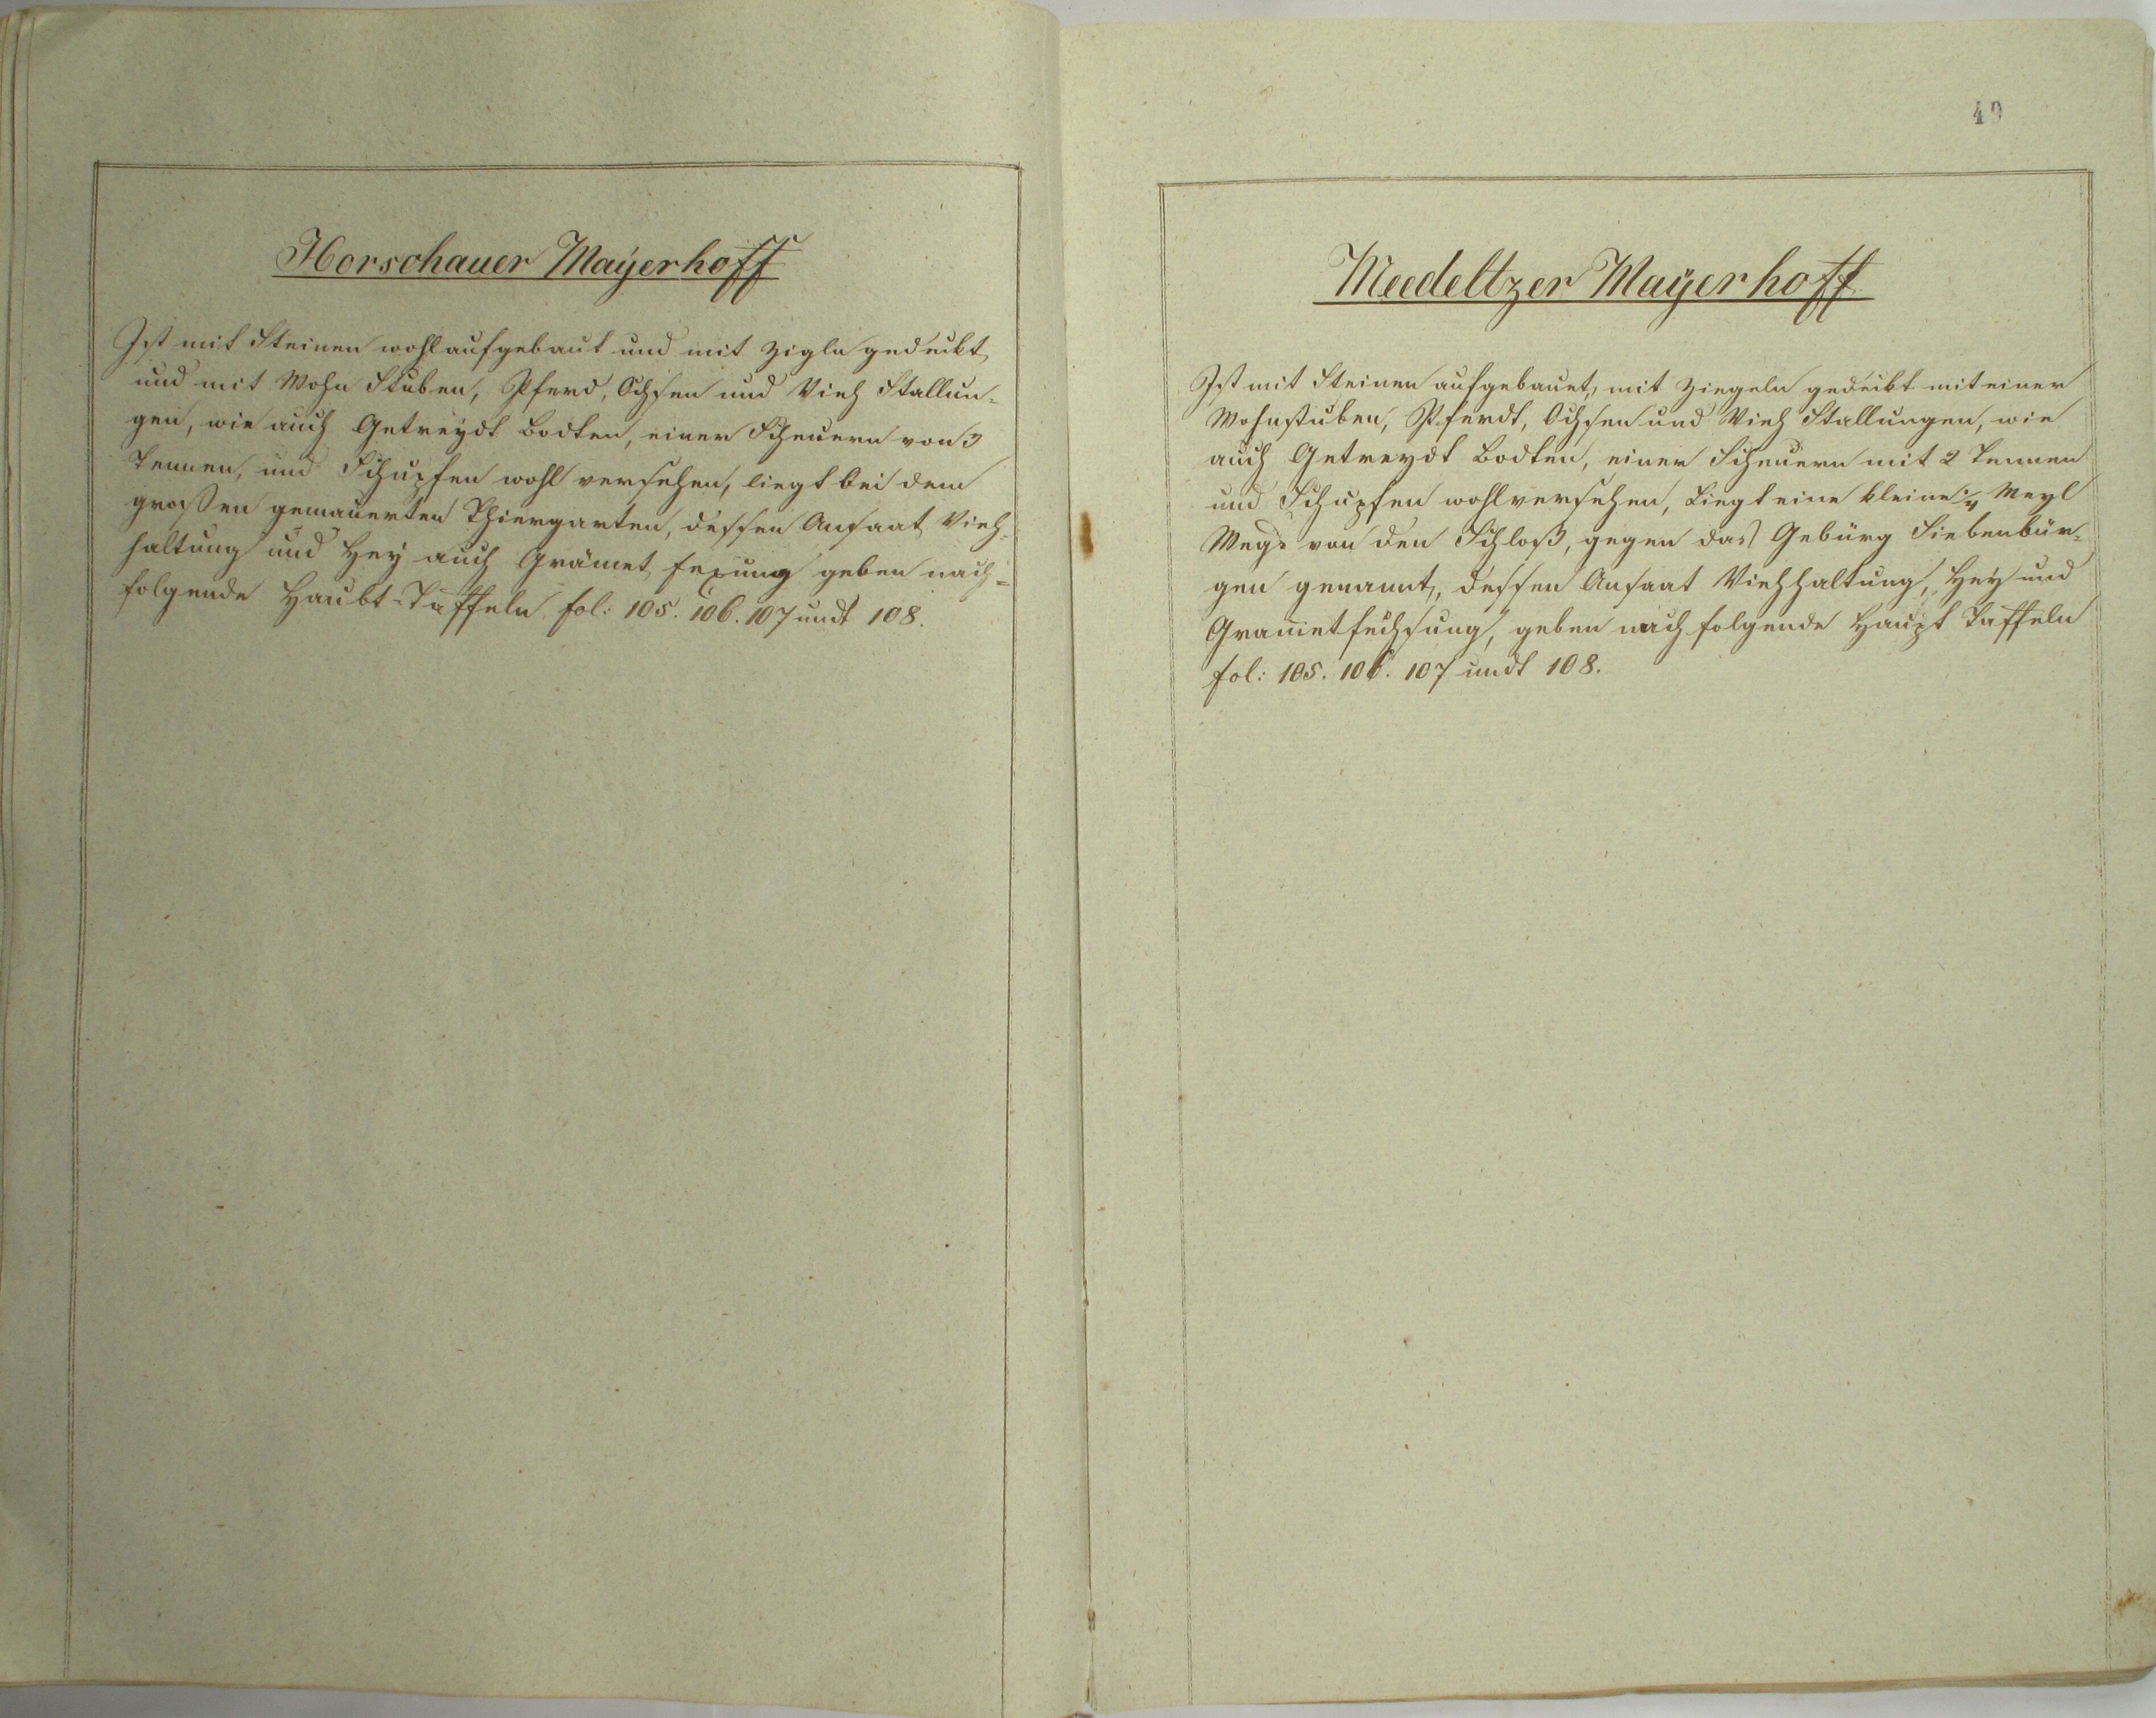 Horschauer Maÿerhoff
Ist mit Steinen wohl aufgebaut und mit Zigln gedeckt
und mit Wohn Stuben, Pferd, Ochsen und Vieh Stallun-
gen, wie auch Getreydt Bodten, einer Scheuern von 3
Tennen, und Schupfen wohl versehen, liegt bei dem
großen gemauerten Thiergarten, dessen Ansaat Vieh-
haltung und Heÿ auch Grämet fexung geben nach-
folgende Haubt-Taffeln fol: 105. 106. 107 undt 108.
49
Maÿerhoff
Ist mit Steinen aufgebauet, mit Ziegeln gedeckt mit einer
Wohnstuben, Pferdt, Ochsen und Vieh Stallungen, wie
auch Getreydt Bodten, einer Scheuern mit 2 Tennen
und Schupfen wohlversehen, Liegt eine kleine Meyl
Wegs von den Schloß, gegen das Gebürg Siebenbür-
gen genannt, dessen Ansaat Viehhaltung, Heÿ und
Grammetfechsung, geben nach folgende Haupt Taffeln
fol: 105. 106. 107 undt 108.